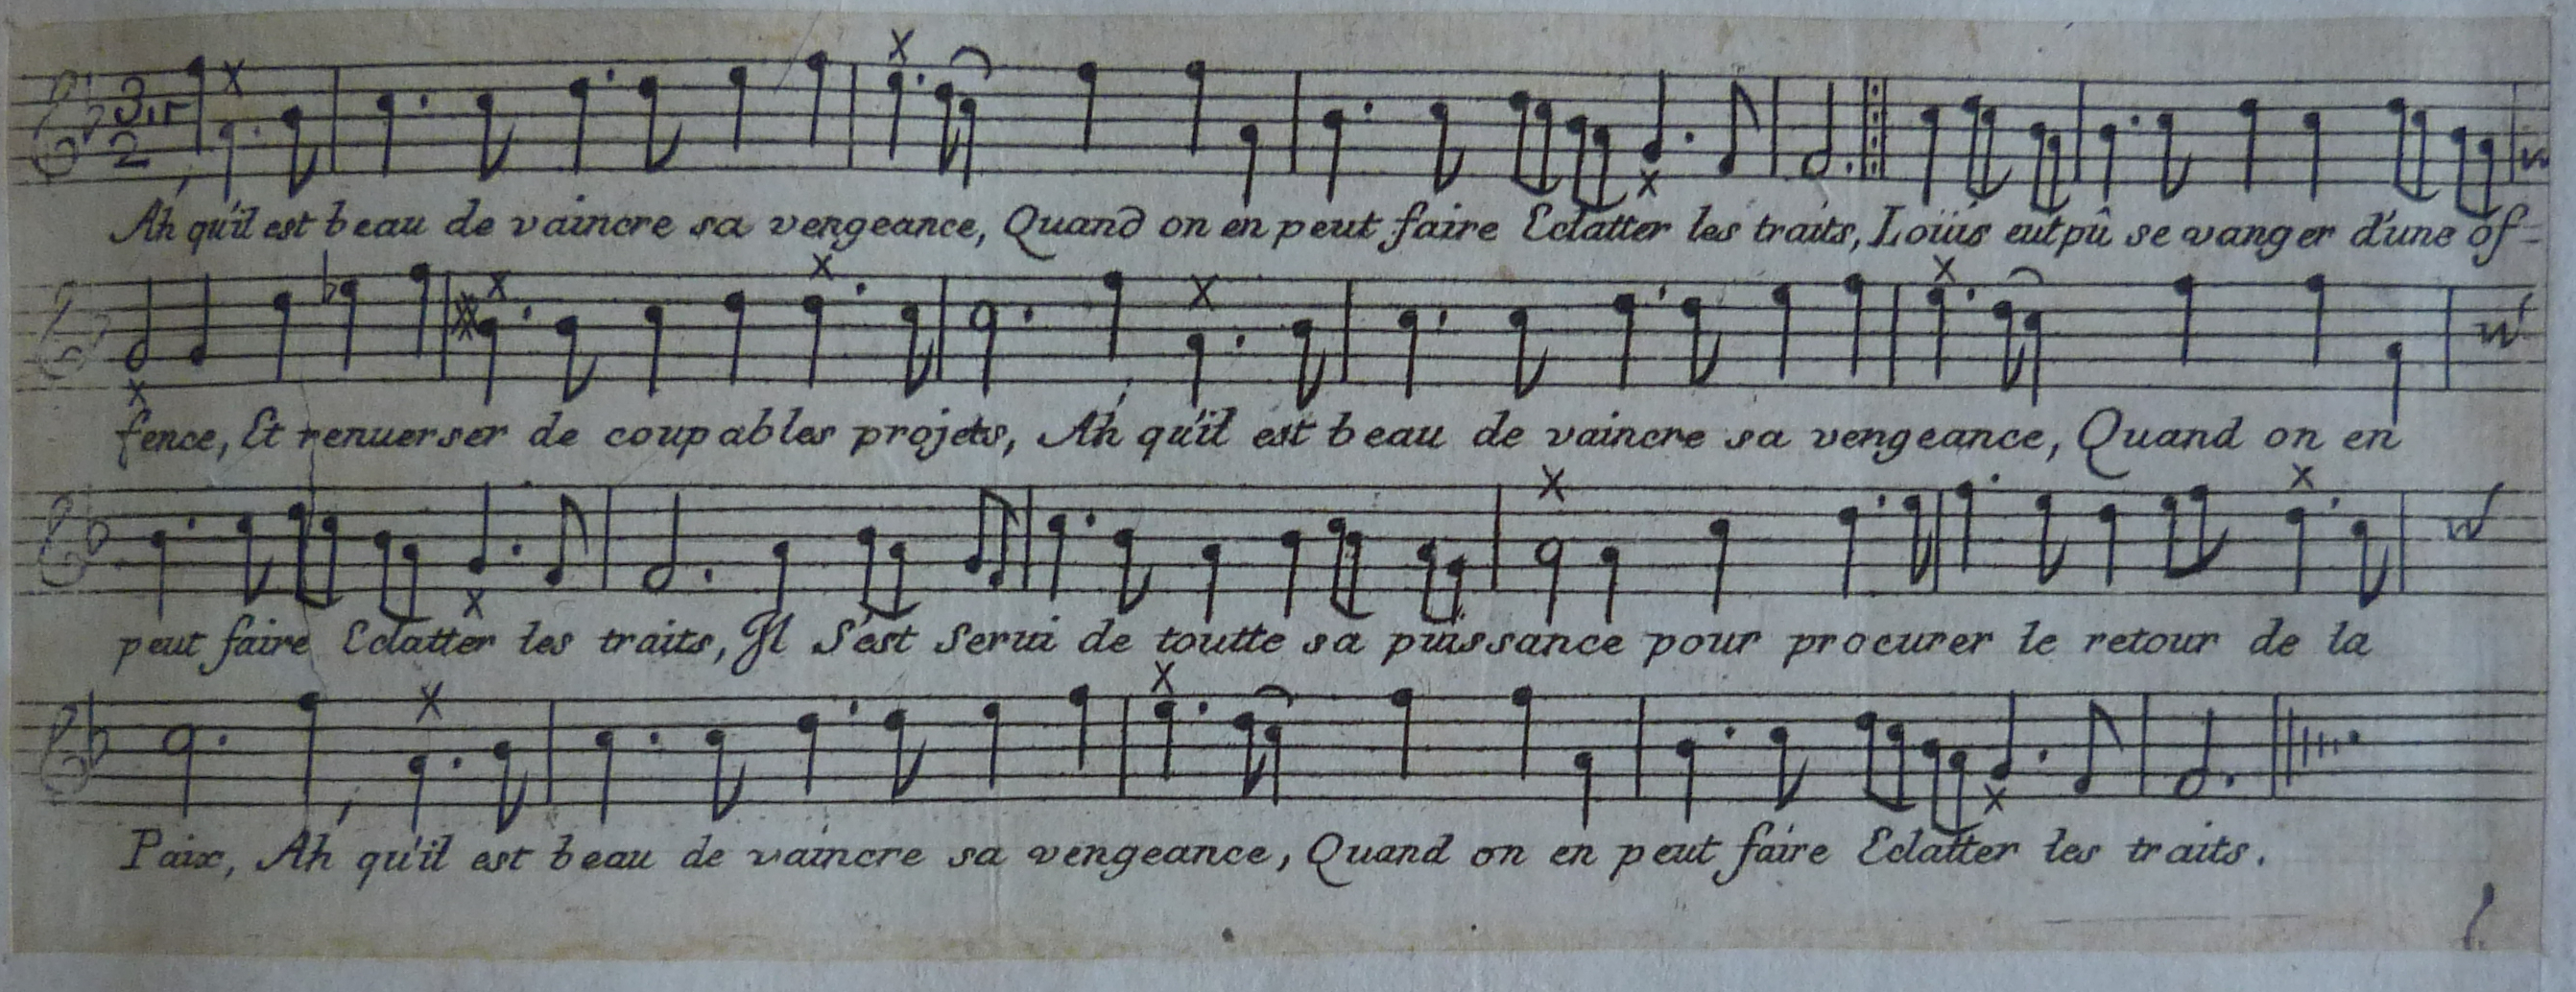 3.
2
Ah qu'il est beau de vaincre sa vengeance, Quand on en peut faire Eclatter les traits, Loüis eut pû se vanger d'une of-
fence, Et renuerser de coupables projets, Ah qu'il est beau de vaincre sa vengeance, Quand on en
peut faire Eclatter les traits, Il S'est Serui de toutte sa puissance pour procurer le retour de la
Paix, Ah qu'il est beau de vaincre sa vengeance, Quand on en peut faire Eclatter les traits.